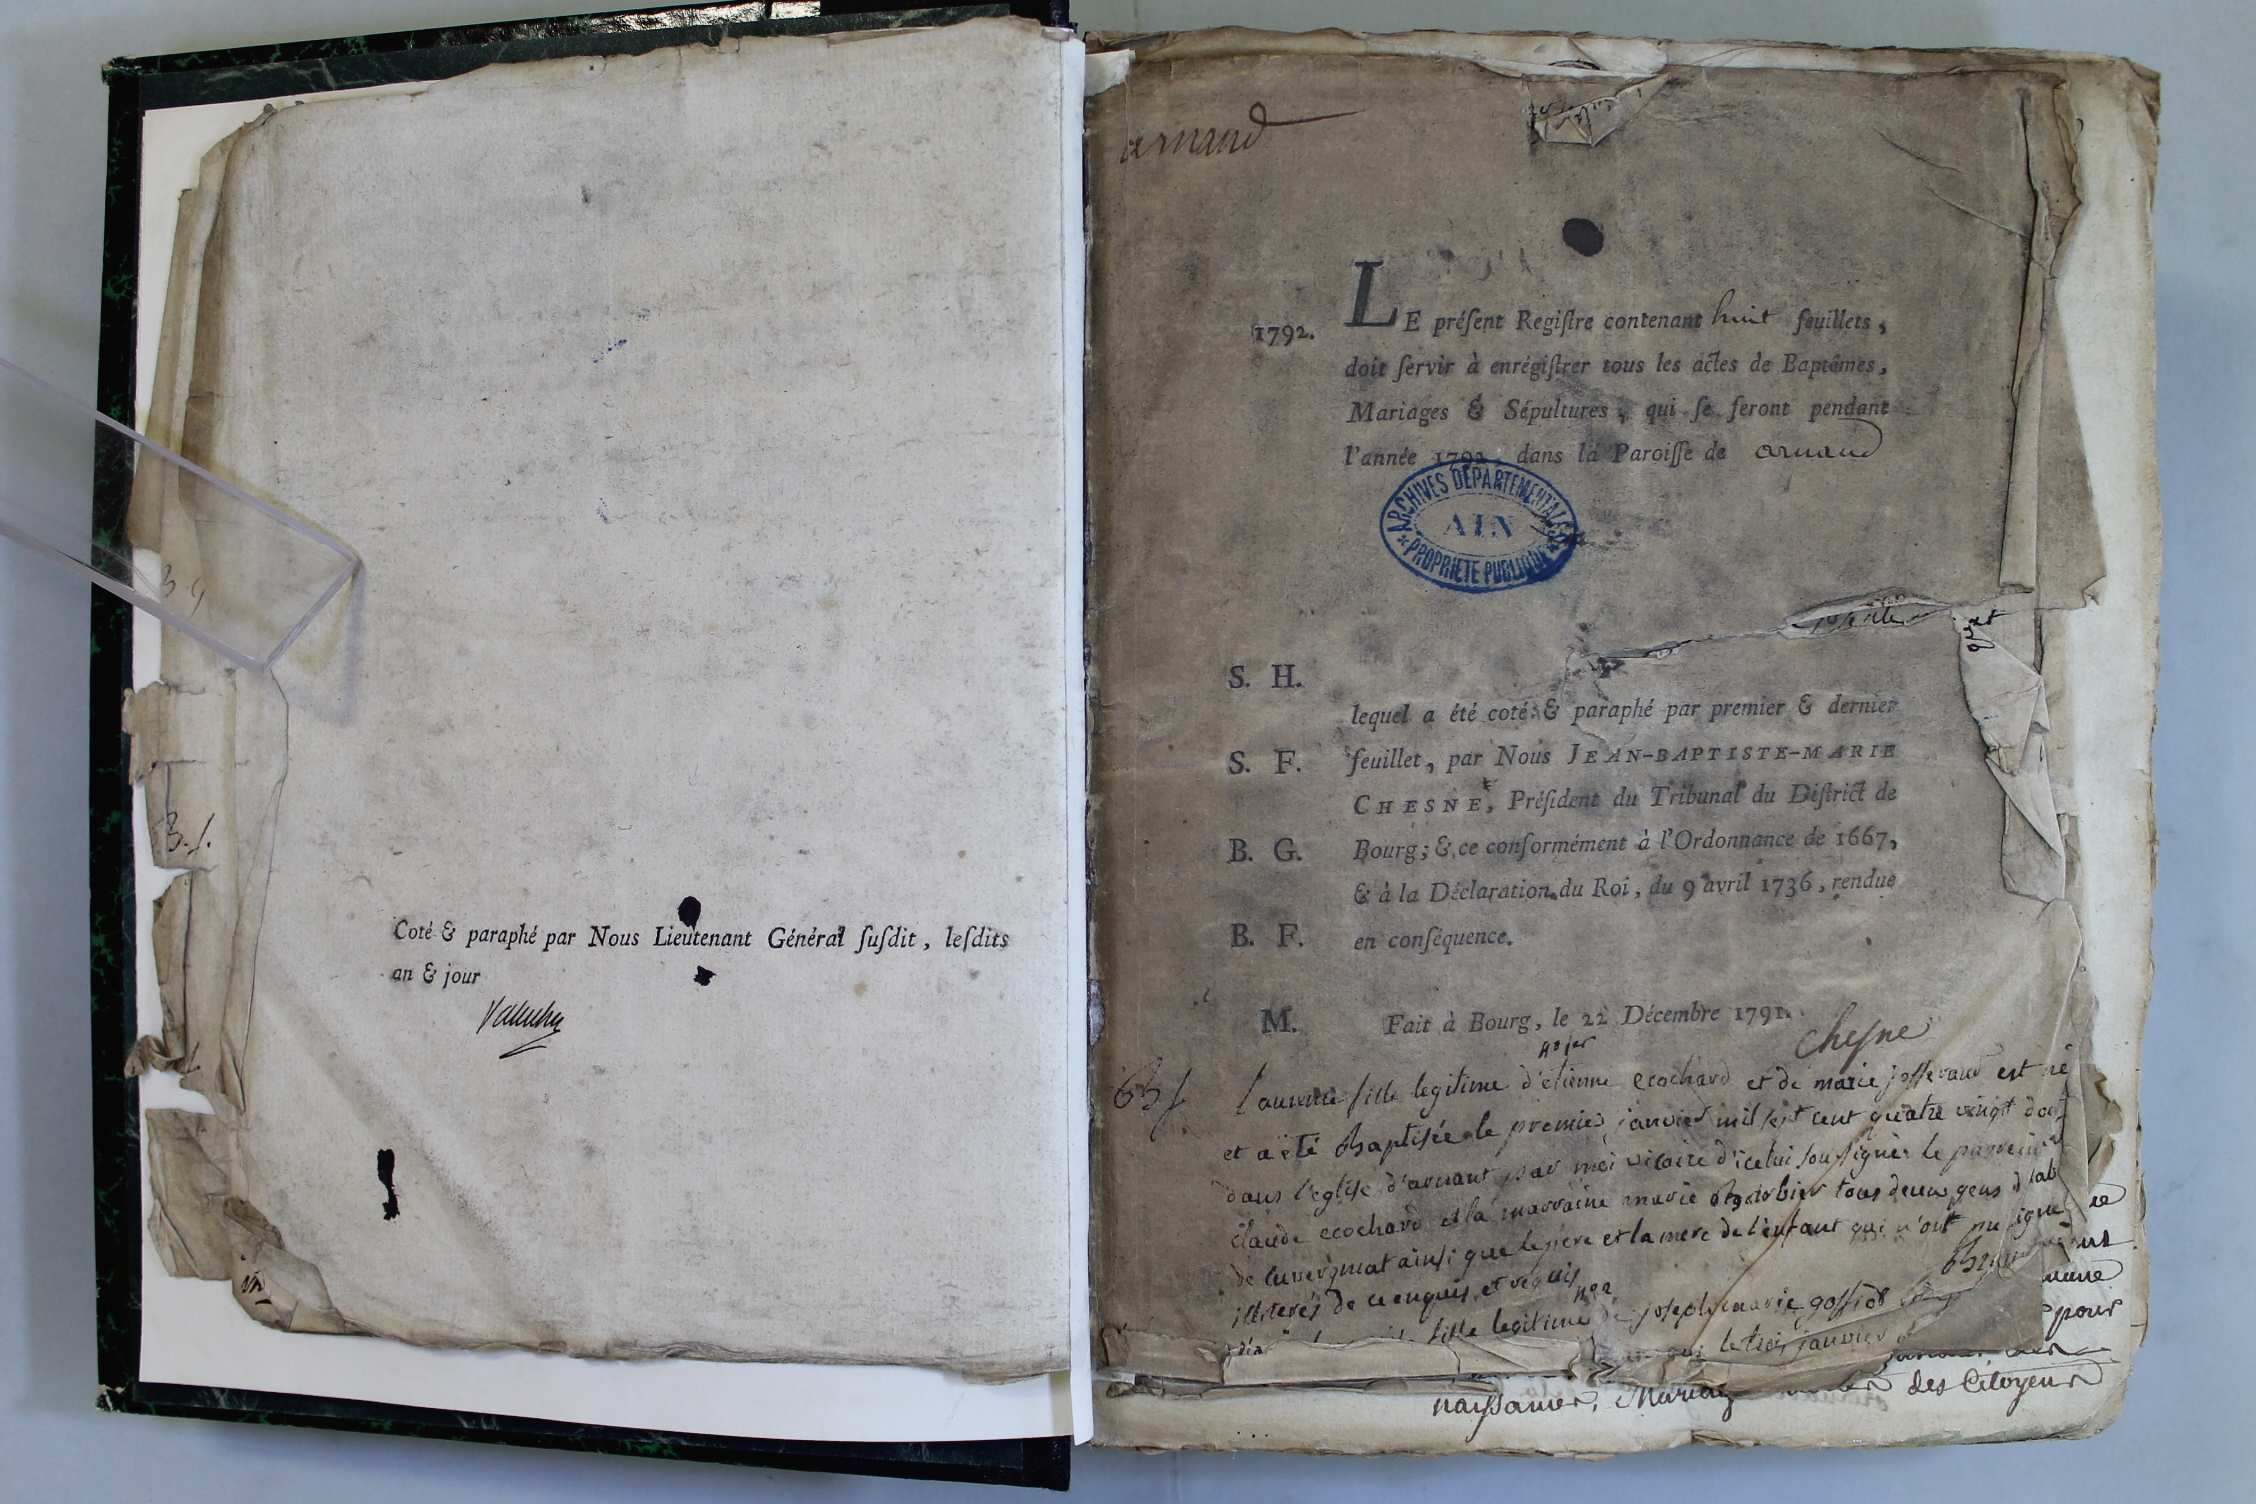 3.f.
Coté & paraphé par Nous Lieutenant Général ſuſdit, leſdits
an & jour
arnand
1792.
LE préſent Regiſtre contenant huit feuillets,
doit ſervir à enrégiſtrer tous les actes de Baptêmes,
Mariages & Sépultures, qui ſe feront pendant
l'année 1792, dans la Paroiſſe de arnand
ARCHIVES DÉPARTEMENTALES
AIN
PROPRIÉTÉ PUBLIQUE
S. H.
lequel a été coté & paraphé par premier & dernier
S. F. feuillet, par Nous JEAN-BAPTISTE-MARIE
CHESNE, Préſident du Tribunal du Diſtrict de
B. G. Bourg; & ce conformément à l'Ordonnance de 1667,
& à la Déclaration du Roi, du 9 avril 1736, rendue
B. F. en conſéquence.
M. Fait à Bourg, le 22 Décembre 1791.
cheſne
n° 1er
fille legitime d'etienne ecochard et de marie josserand est né
et a été baptisée le premier janvier mil sept cent quatre vingt
dans l'eglise d'arnant par moi vicaire d'icelui soussigné le parrein
claude ecochard et la marraine marie barbier tous deux gens d
de ainsi que le pere et la mere de l'enfant qui n'ont su signer
illiterés de ce enquis et requis
n° 2
fille legitime joseph marie
le trois janvier
pour
naissances, des Citoyens